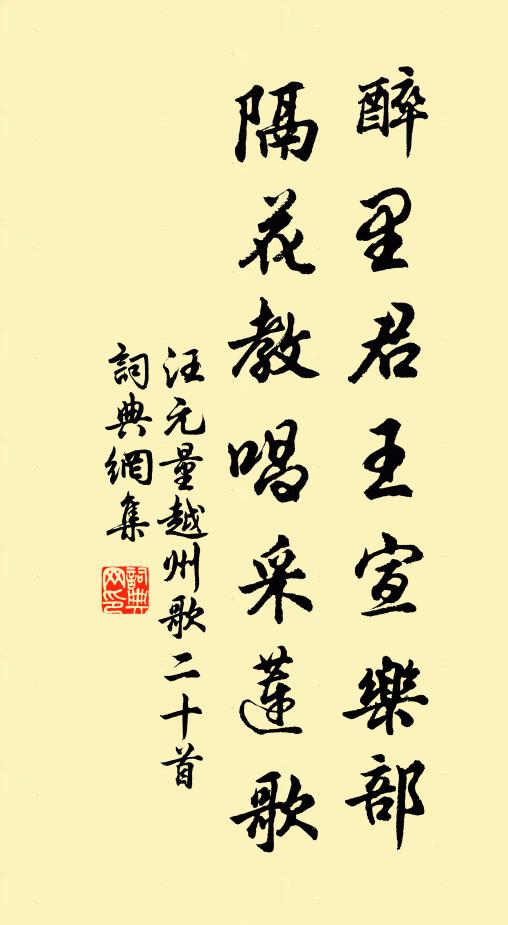 醉里君王宣樂部
隔花教唱采蓮歌
汪元量越州歌二十首
詞典網集
詞典網印